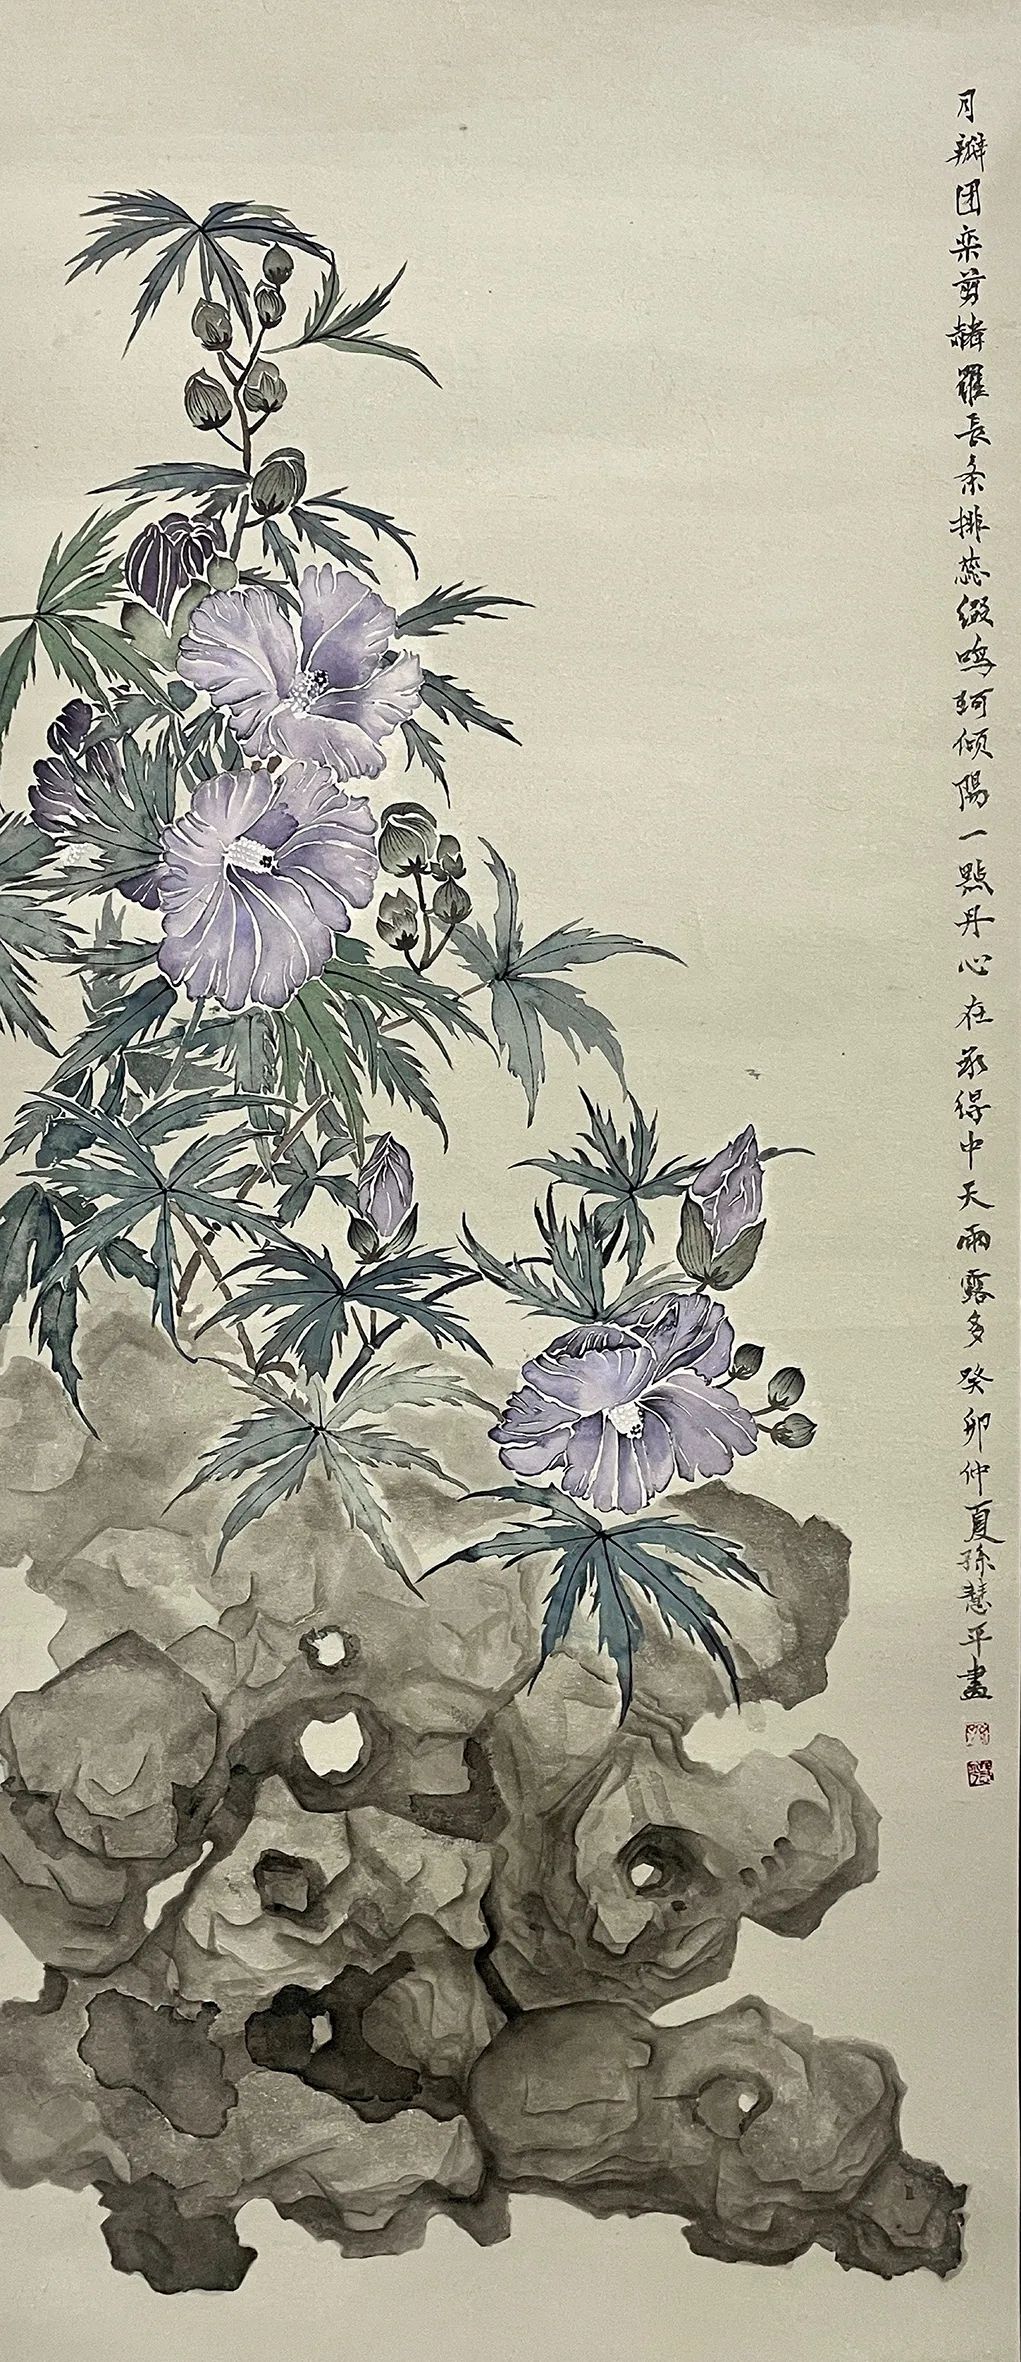 月瓣团栾剪赭羅長条排蕊缀鸣珂倾陽一點丹心在承得中天雨露多癸卯仲夏孫慧平畫